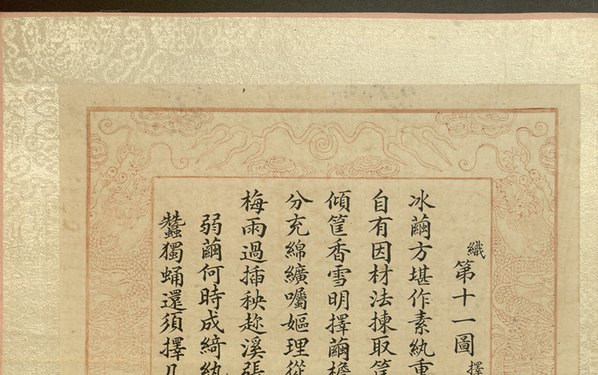 織第十一圖 擇
冰繭方堪作素紈重
自有因材法揀取筐
傾筐香雪明擇繭檐
分充綿纊囑嫗理從
梅雨過插秧趁溪張
弱繭何時成綺紈
蠶獨蛹還須擇几